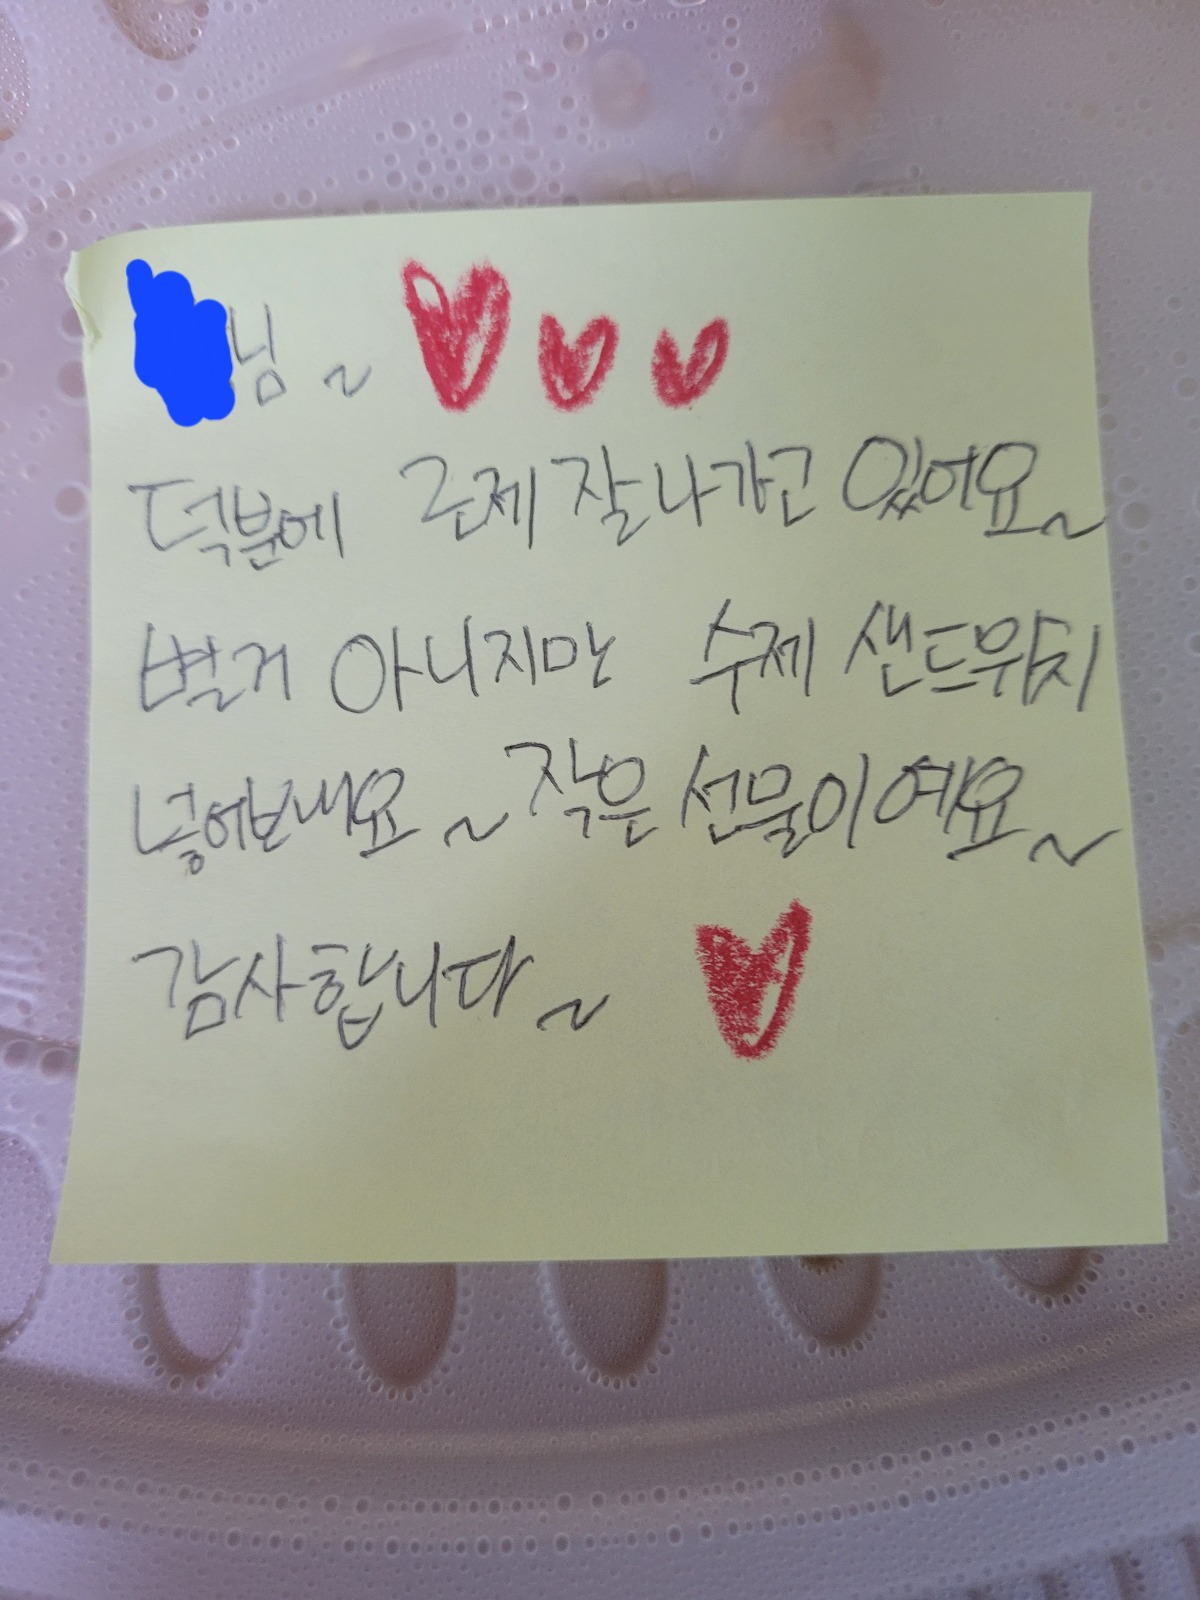 님~
덕분에 근제 잘 나가고 있어요~
별거 아니지만 수제 샌드위치
넣어보내요~ 작은 선물이예요~
감사합니다~